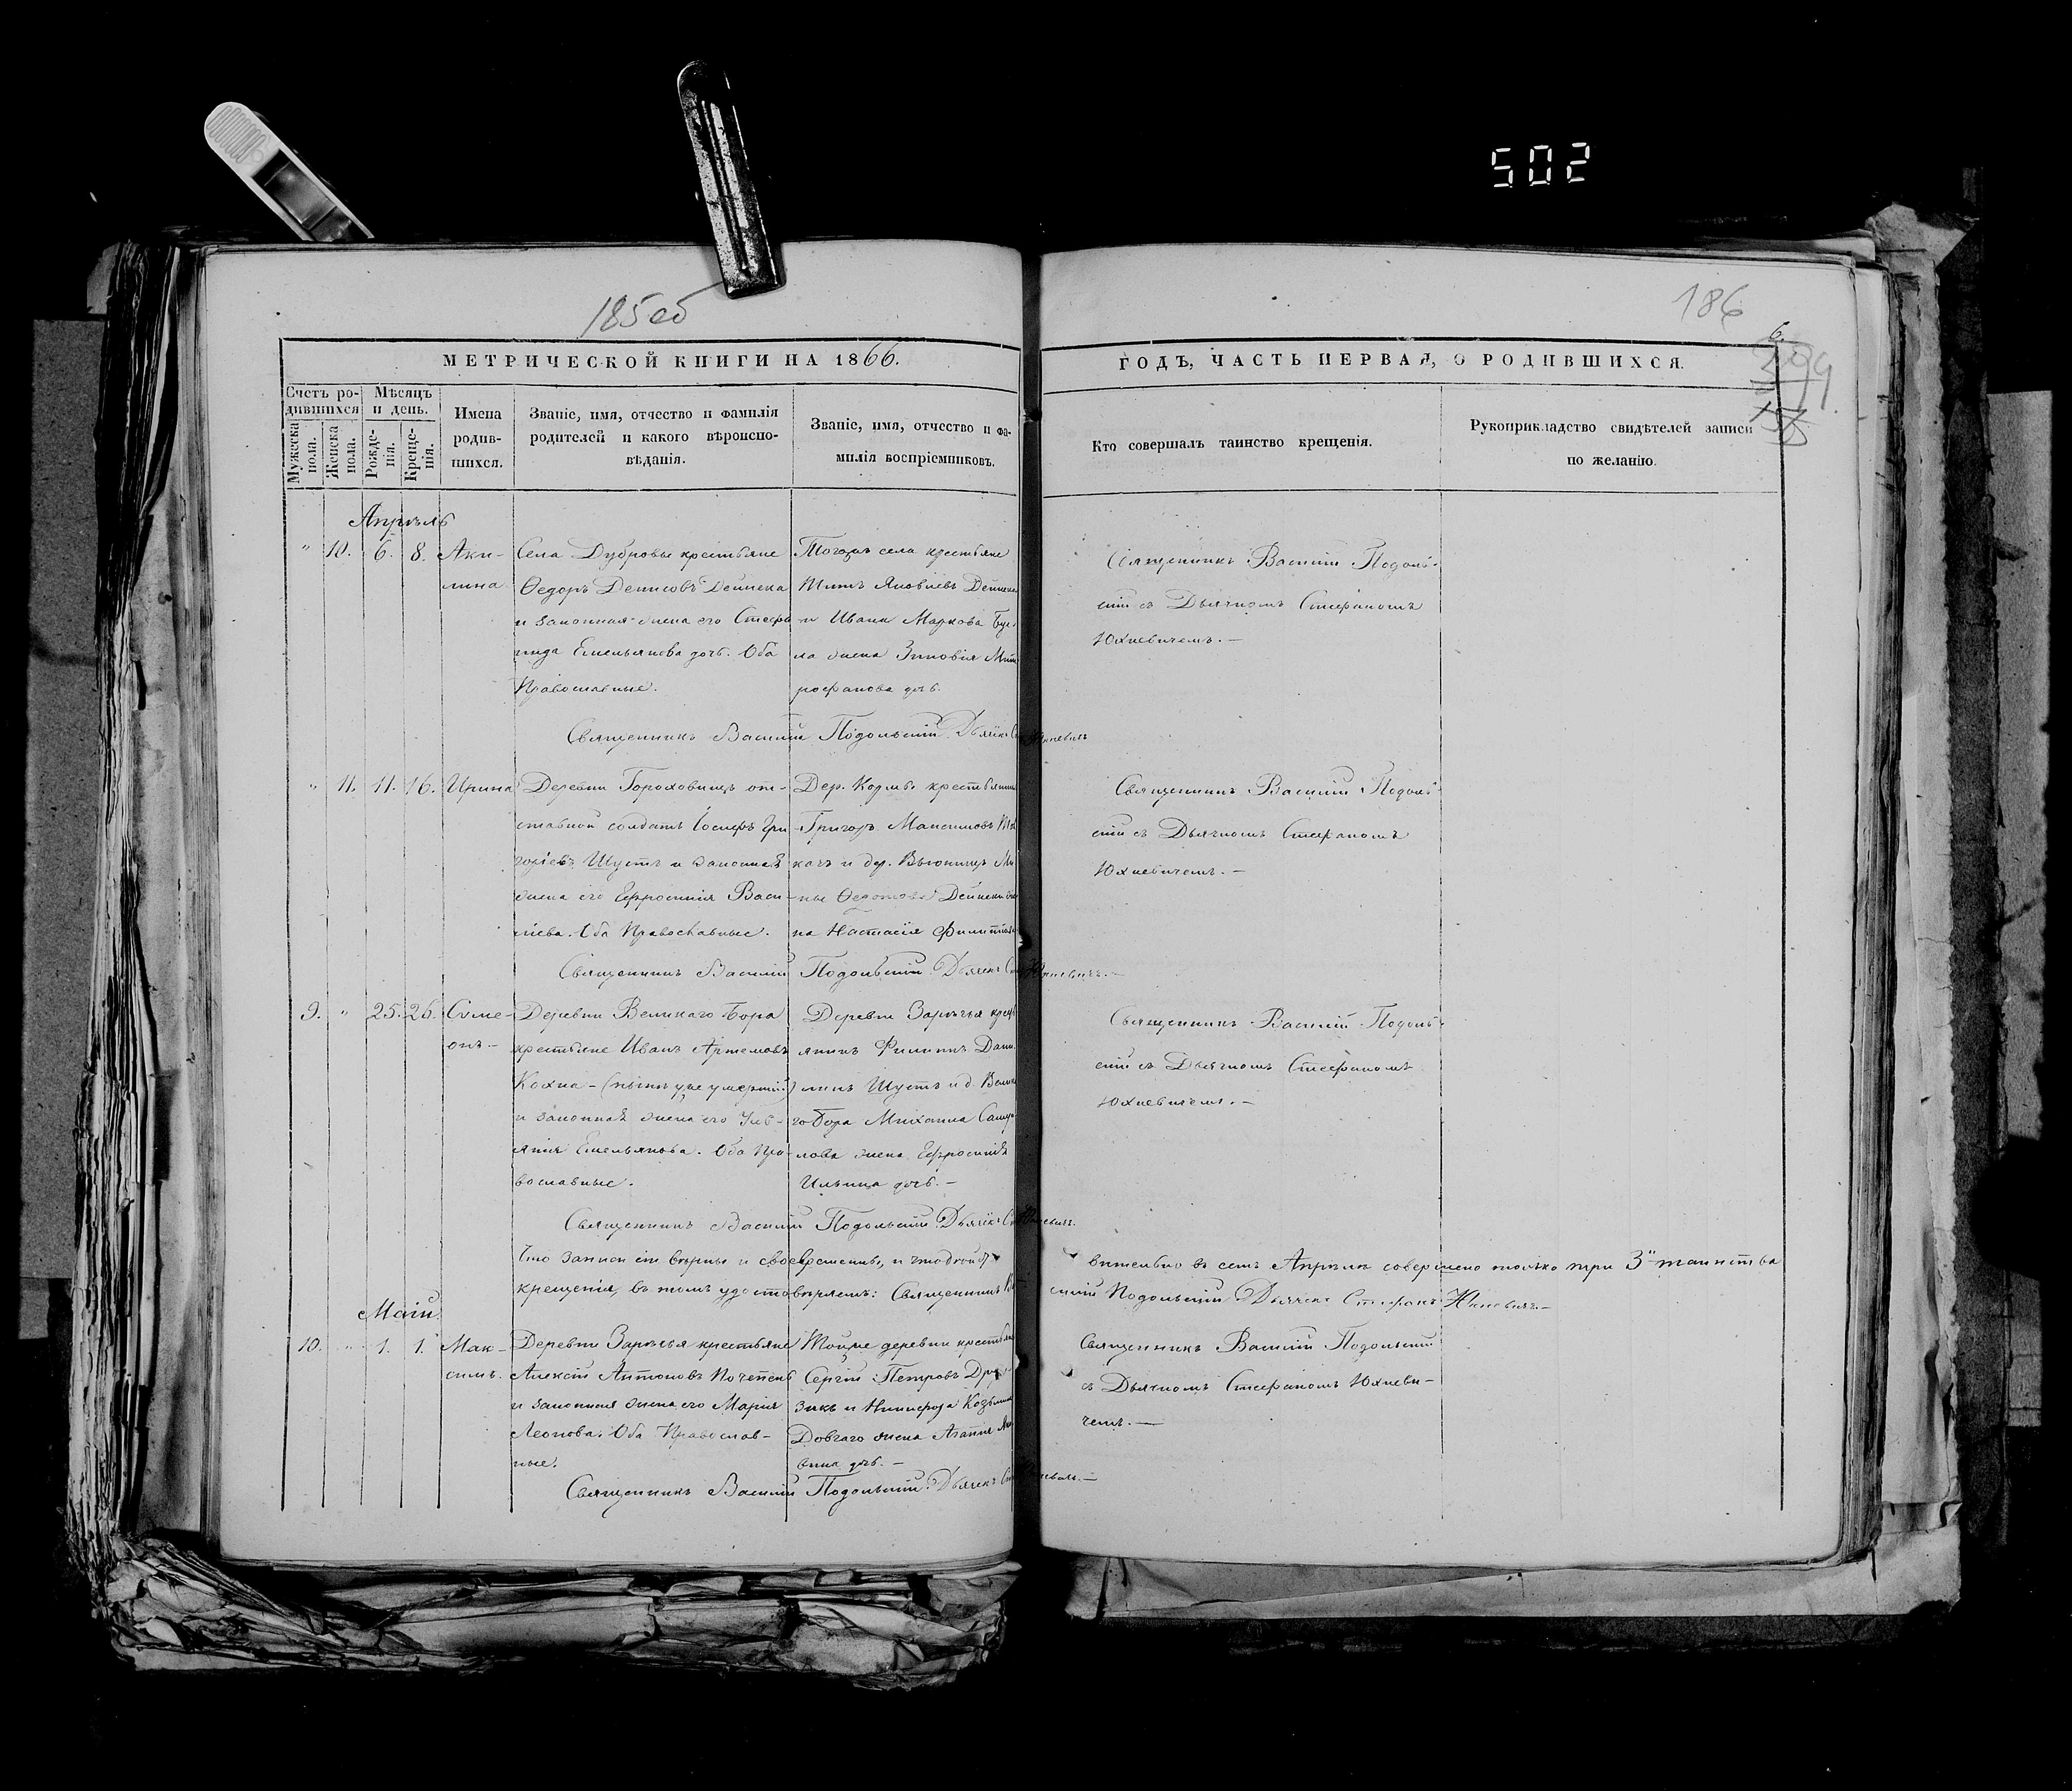 502
185об
186
6.
299
МЕТРИЧЕСКОЙ КНИГИ НА 1866.
ГОДЪ, ЧАСТЬ ПЕРВАЯ, О РОДИВШИХСЯ.
Счетъ ро-
дившихся
Мужеска
пола.
Женска
пола.
Мѣсяцъ
и день.
Рожде-
нія.
Креще-
нія.
Имена
родив-
шихся.
Званіе, имя, отчество и фамилія
родителей и какого вѣроиспо-
вѣданія.
Званіе, имя, отчество и фа-
милія воспріемниковъ.
Кто совершалъ таинство крещенія.
Рукоприкладство свидѣтелей записи
по желанію.
Апрѣль
" 10. 6. 8. Аки-
лина
Села Дубровы крестьяне
Ѳедоръ Денисовъ Дейнека
и законная жена его Стефа-
нида Емельянова дочь. Оба
Православные.
Тогожъ села крестьяне
Титъ Яковлевъ Дейнека
и Ивана Маркова
жена Зиновія Мит
рофанова дочь.
Священникъ Василій Подоль-
скій съ Дьячкомъ Стефаномъ
Юхневичемъ. —
Священникъ Василій Подольскій. Дьячекъ Юхневичъ
" 11. 11. 16. Ирина
Деревни Гороховищъ от-
ставной солдатъ Іосифъ Гри
горіевъ Шустъ и законная
жена его Ефросинія Васи-
ліева. Оба Православные.
Дер. Кормы крестьянинъ
Григор. Максимовъ
качъ и дер. Вьюнищъ Ми
ны Ѳедотова Дейнеки же
на Настасія Филиппова
Священникъ Василій Подоль-
скій съ Дьячкомъ Стефаномъ
Юхневичемъ. —
Священникъ Василій Подольскій. Дьячекъ Юхневичъ. —
9. " 25. 26. Симе-
онъ. —
Деревни Великаго Бора
крестьяне Иванъ Артемовъ
Кохна — (нынѣ уже умершій)
и законная жена его Уль-
янія Емельянова. Оба Пра-
вославные.
Деревни Зарѣчья крест
янинъ Филиппъ Дани
линъ Шустъ и д. Велика
го Бора Михаила Самуй
лова жена Ефросинія
Ильина дочь. —
Священникъ Василій Подоль-
скій съ Дьячкомъ Стефаномъ
Юхневичемъ. —
Священникъ Василій Подольскій. Дьячекъ Юхневичъ.
Что записи сіи вѣрны и своевременны, и что дѣйст вительно въ семъ Апрѣлѣ совершено только три 3" таинства
крещенія, въ томъ удостовѣряемъ: Священникъ Ва силій Подольскій Дьячекъ Стефанъ Юхневичъ. —
Маій.
10. " 1. 1. Мак-
симъ.
Деревни Зарѣчья крестьяне
Алексій Антоновъ Почепень
и законная жена его Марія
Леонова. Оба Православ-
ные.
Тойже деревни крестьяне
Сергій Петровъ
зикъ и Никифора Козьмина
Довгаго жена Агапія
вина дочь. —
Священникъ Василій Подольскій
съ Дьячкомъ Стефаномъ Юхневи-
чемъ. —
Священникъ Василій Подольскій. Дьячекъ Юхневичъ. —